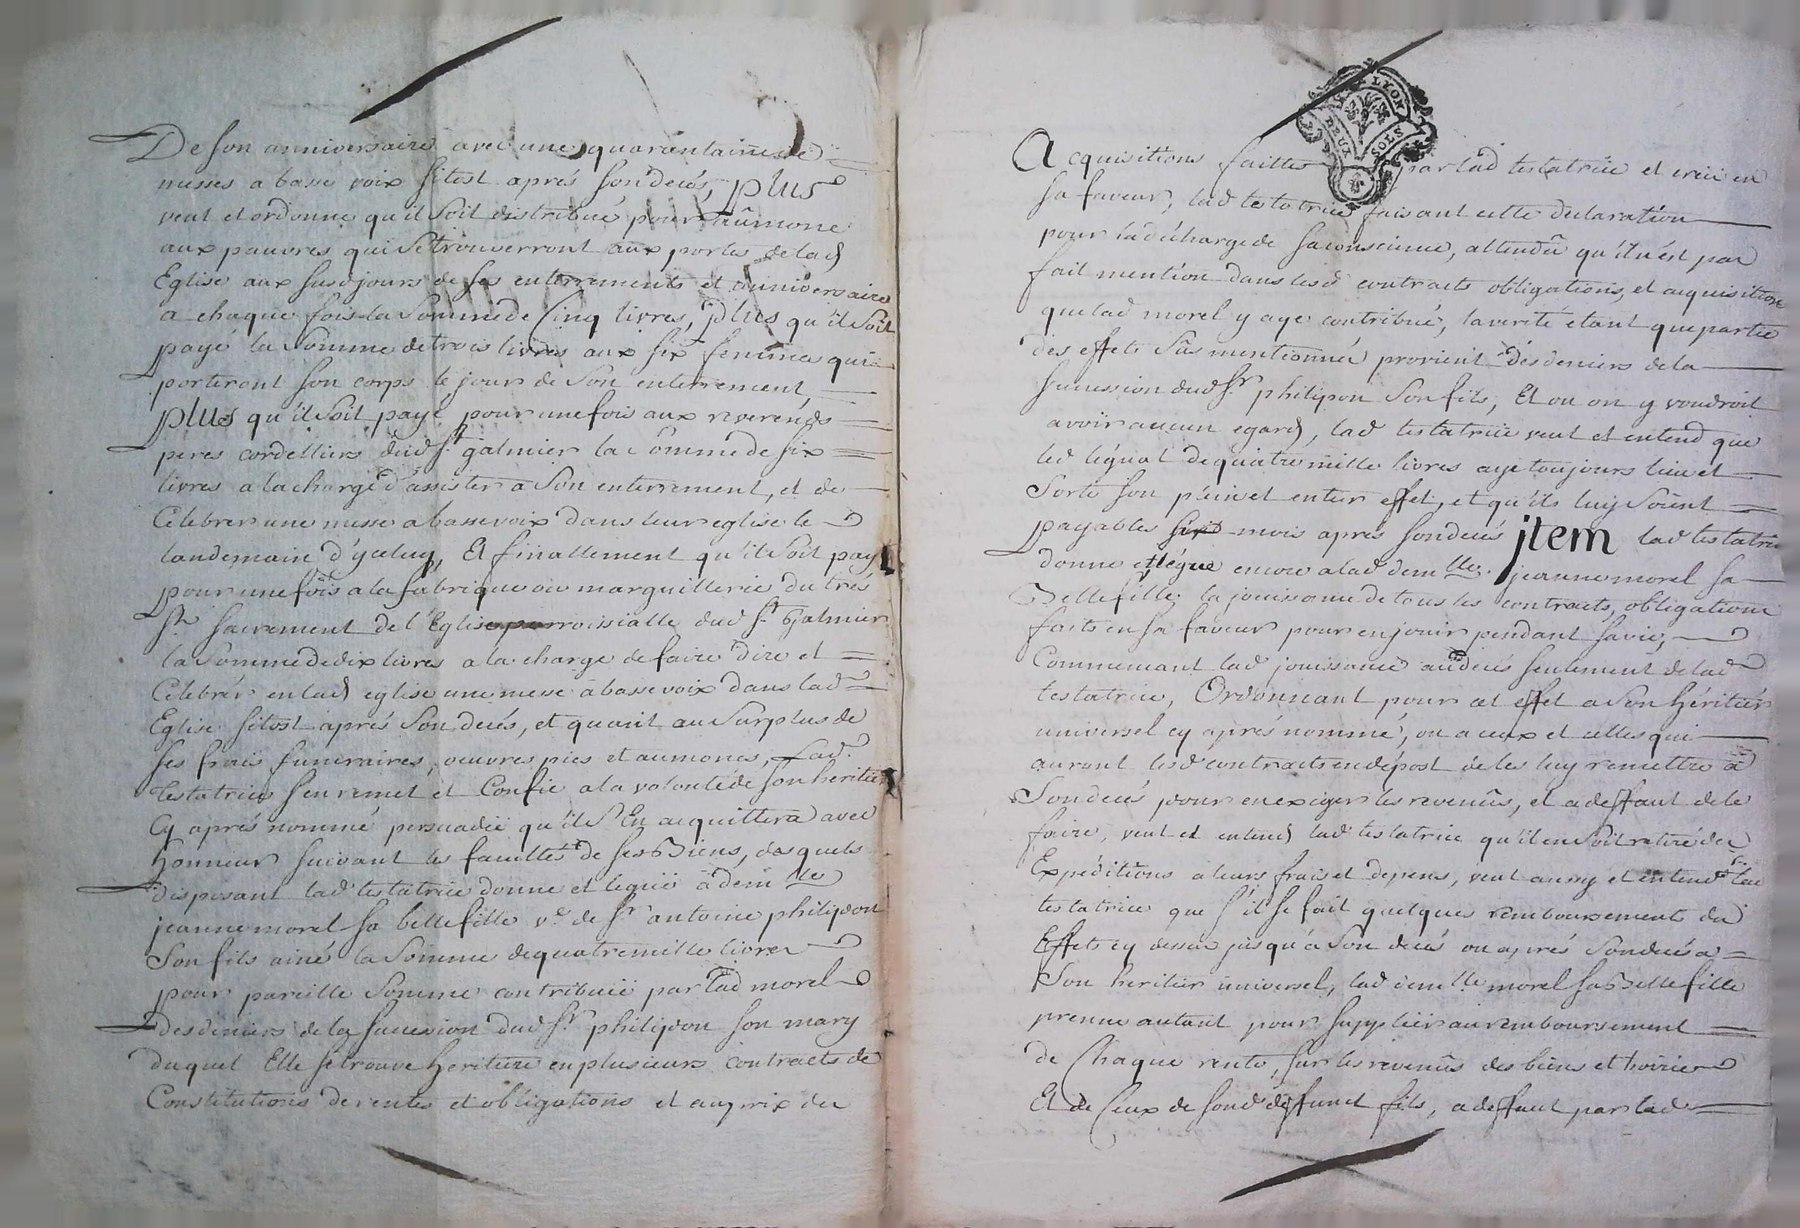 De son anniversaire avec une quarantaine de
messes a basse voix sitost aprés son decés, plus
veut et ordonne qu'il soit distribué pour aûmone
aux pauvres qui se trouverront aux portes de lad
Eglise aux susd jours de ses enterrements et anniversaire
a chaque fois la somme de Cinq livres, plus qu'il soit
payé la somme de trois livres aux six femmes qui
porteront son corps le jour de son enterrement,
plus qu'il soit payé pour une fois aux reverends
peres cordelliers dud St galmier la somme de six
livres a la charge d'assister a son enterrement, et de
Celebrer une messe a basse voix dans leur eglise le
landemain d'yceluy, Et finallement qu'il soit payé
pour une fois a la fabrique ou marguillerie du trés
St sacrement de l'Eglise parroissialle dud St Galmier
la somme de dix livres a la charge de faire dire et
Celebrér en lad eglise une messe a basse voix dans lad
Eglise sitost aprés son decés, et quant au surplus de
ses frais funeraires, oeuvres pies et aumones, lad
testatrice s'en remet et Confie a la volonté de son heritier
Cy aprés nommé persuadéé qu'il s'En acquittera avec
honneur suivant les facultés de ses Biens, desquels
disposant lad testatrice donne et leguë a demlle
jeanne morel sa belle fille ve de Sr antoine philipon
son fils ainé la somme de quatre mille livres
pour pareille somme contribuéé par lad morel
des deniers de la succession dud Sr philipon son mary
duquel Elle se trouve heritiere en plusieurs contracts de
Constitutions de rentes et obligations et au prix des
DEUX SOLS LYON
Acquisitions faittes par lad testatrice et icelle en
sa faveur, lad testatrice faisant cette declaration
pour la décharge de sa conscience, attendû qu'il n'est pas
fait mention dans lesd contracts obligations, et acquisitions
que lad morel y aye contribué, la verité etant que partie
des effets sûs mentionnés provient des deniers de la
succession dud Sr philipon son fils, Et ou on y voudroit
avoir aucun egard, lad testatrice veut et entend que
led légual de quatre mille livres aye toujours lieu et
sorte son plein et entier effet, et qu'ils luy soient
payables six mois aprés son decés jtem lad testatrice
donne et légue encore a lad demlle jeanne morel sa
Belle fille la jouissance de tous les contracts, obligations
faits en sa faveur pour en jouir pendant sa vie,
Commencant lad jouissance au decés seulement de lad
testatrice, Ordonnant pour cet effet a son héritiér
universel cy aprés nommé, ou a ceux et celles qui
auront lesd contracts en dépost de les luy remettre a
son decés pour en exiger les revenûs, et a deffaut de le
faire, veut et entend lad testatrice qu'il en soit retiré des
Expéditions a leurs frais et depens, veut aussy et entend lad
testatrice que s'il se fait quelques remboursements des
Effets cy dessus jusqu'a son decés ou aprés son decés a
son heritier universel, lad demlle morel sa Belle fille
prenne autant pour suppléér au remboursement
de Chaque rente, sur les revenûs des biens et hoirie
Et de Ceux de sond deffunct fils, a deffaut par lad